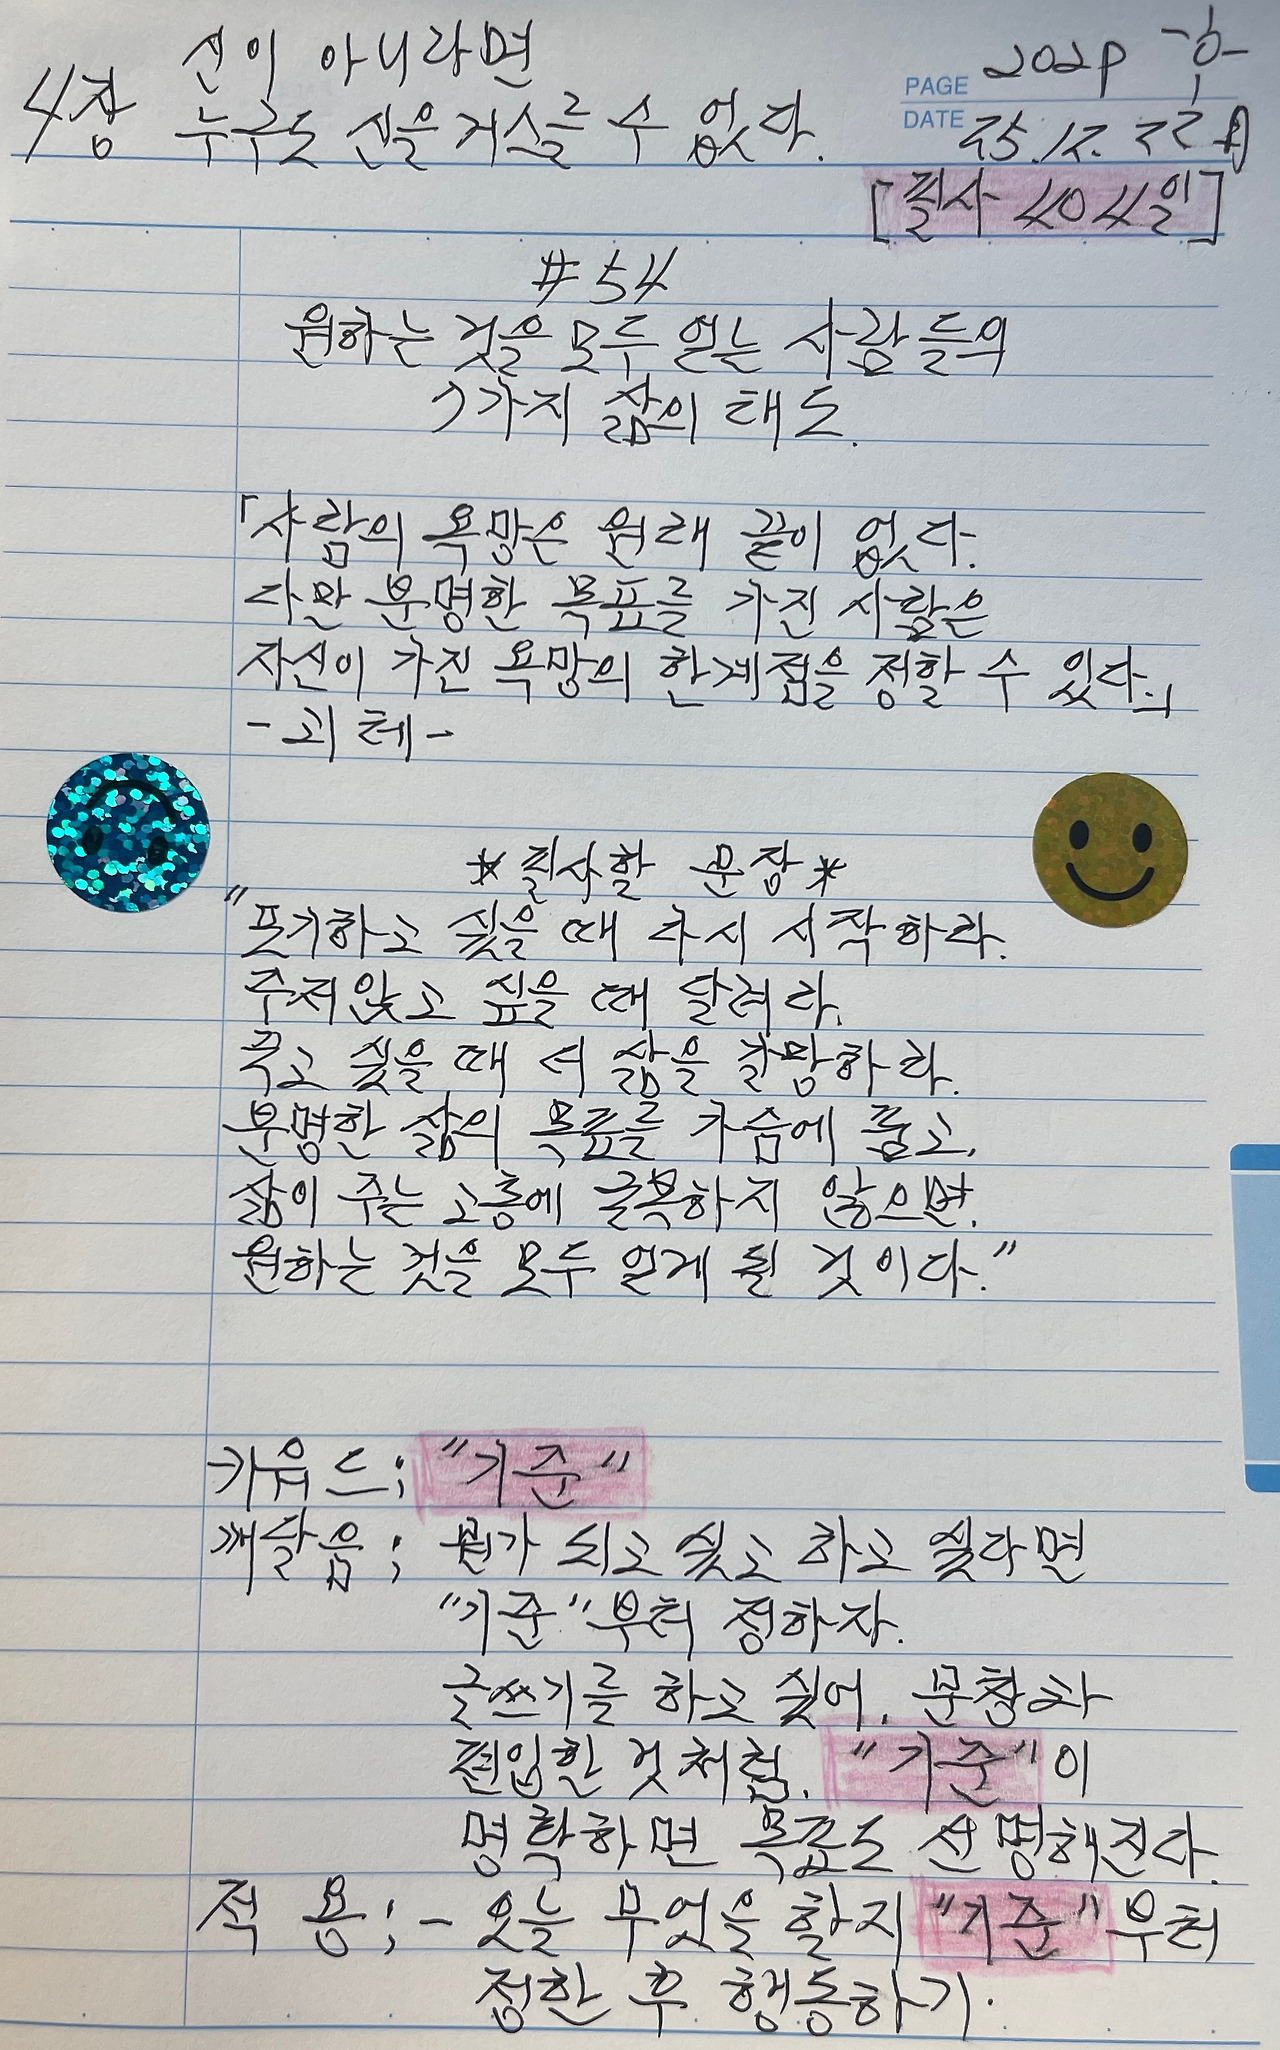 4장 신이 아니라면
누구도 신을 거스를 수 없다.
PAGE 202p
DATE 25.12.22 월
[필사 404일]
#54
원하는 것을 모두 얻는 사람들의
7가지 삶의 태도.
「사람의 욕망은 원래 끝이 없다.
다만 분명한 목표를 가진 사람은
자신이 가진 욕망의 한계점을 정할 수 있다.」
-괴테-
*필사할 문장*
"포기하고 싶을 때 다시 시작하라.
주저앉고 싶을 때 달려라.
죽고 싶을 때 더 삶을 갈망하라.
분명한 삶의 목표를 가슴에 품고,
삶이 주는 고통에 굴복하지 않으면,
원하는 것을 모두 얻게 될 것이다."
키워드; "기준"
깨달음; 뭔가 되고싶고 하고 싶다면
"기준"부터 정하자.
글쓰기를 하고 싶어, 문창과
편입한 것처럼. "기준"이
명확하면 목표도 선명해진다.
적용; - 오늘 무엇을 할지 "기준"부터
정한 후 행동하기.